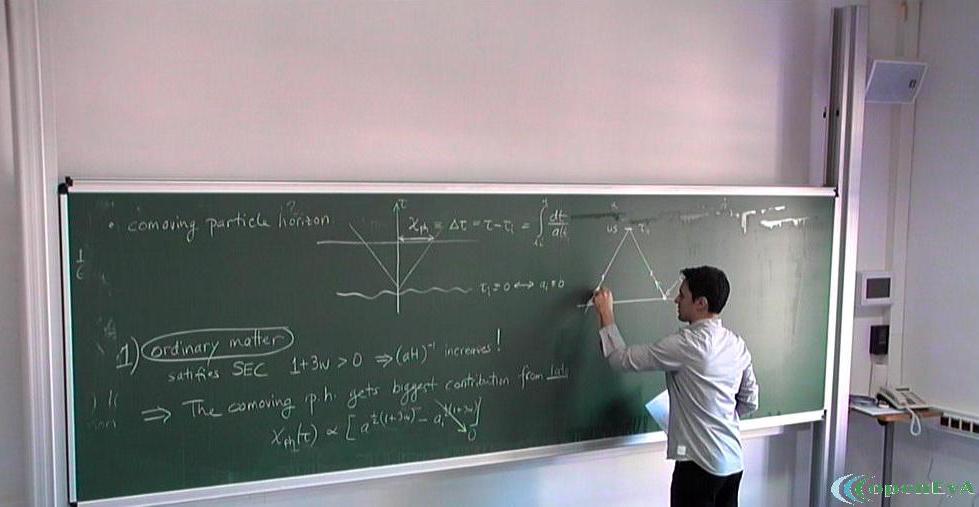 • comoving particle horizon
τ
χ_ph = Δτ = τ - τ_i = ∫ dt/a(t)
us τ₀
τ_i = 0 ↔ a_i = 0
1) ordinary matter
satifies SEC 1+3w > 0 ⇒ (aH)⁻¹ increases!
⇒ The comoving p.h. gets biggest contribution from late
χ_ph(τ) ∝ [a^{½(1+3w)} - a_i^{½(1+3w)}] 0
openEyA